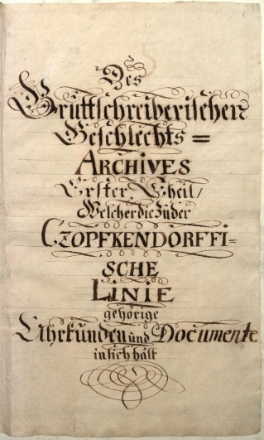 Des
Gruttschreiberischen
Geschlechts=
ARCHIVES
Erster Theil/
Welcher die zu der
CZOPFKENDORFFI=
SCHE
LINIE
gehörige
Uhrkunden und Documente
in sich hält